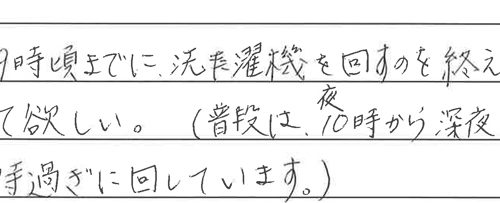 9時頃までに、洗濯機を回すのを終え
て欲しい。(普段は、夜10時から深夜
時過ぎに回しています。)